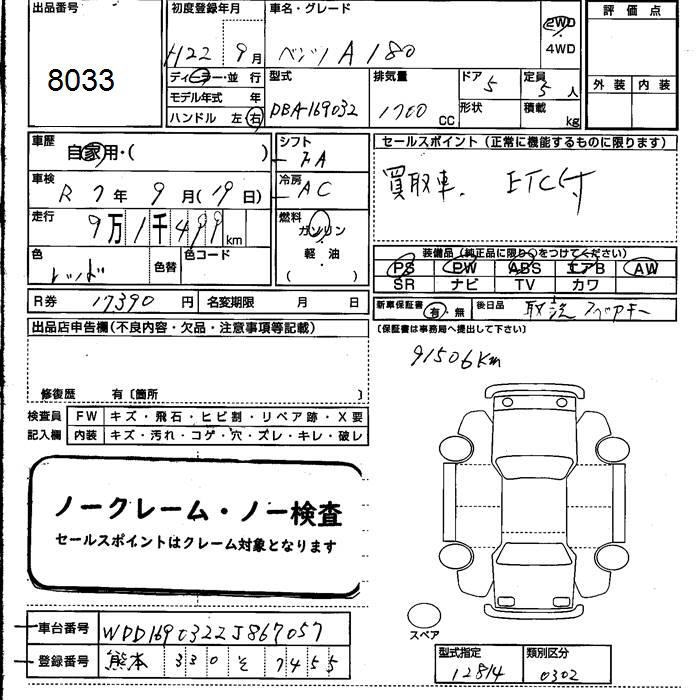 出品番号 初度登録年月 車名・グレード 評価点
8033 H22年9月 ベンツ A180 2WD 4WD
ディーラー・並行 型式 排気量 ドア 定員 外装 内装
モデル年式 年 DBA-169032 1700CC 5 5人
ハンドル 左 右 形状 積載 kg
車歴 自家用・( ) シフト FA セールスポイント(正常に機能するものに限ります)
車検 R7年9月(19日) 冷房 AC 買取車. ETC付
走行 9万1千499km 燃料 ガソリン
色 レッド 色替 色コード 軽・油 ( )
装備品(純正品に限り○をつけてください)
PS PW ABS エアB AW
SR ナビ TV カワ
R券 17390円 名変期限 月 日 新車保証書 有・無 後日品 取説 スペアキー
出品店申告欄(不良内容・欠品・注意事項等記載) (保証書は事務局へ提出して下さい)
91506Km
修復歴 有〔箇所 〕
検査員 FW キズ・飛石・ヒビ割・リペア跡・X要
記入欄 内装 キズ・汚れ・コゲ・穴・ズレ・キレ・破レ
ノークレーム・ノー検査
セールスポイントはクレーム対象となります
車台番号 WDD1690322J867057
スペア
登録番号 熊本 330 そ 7455
型式指定 類別区分
12814 0302